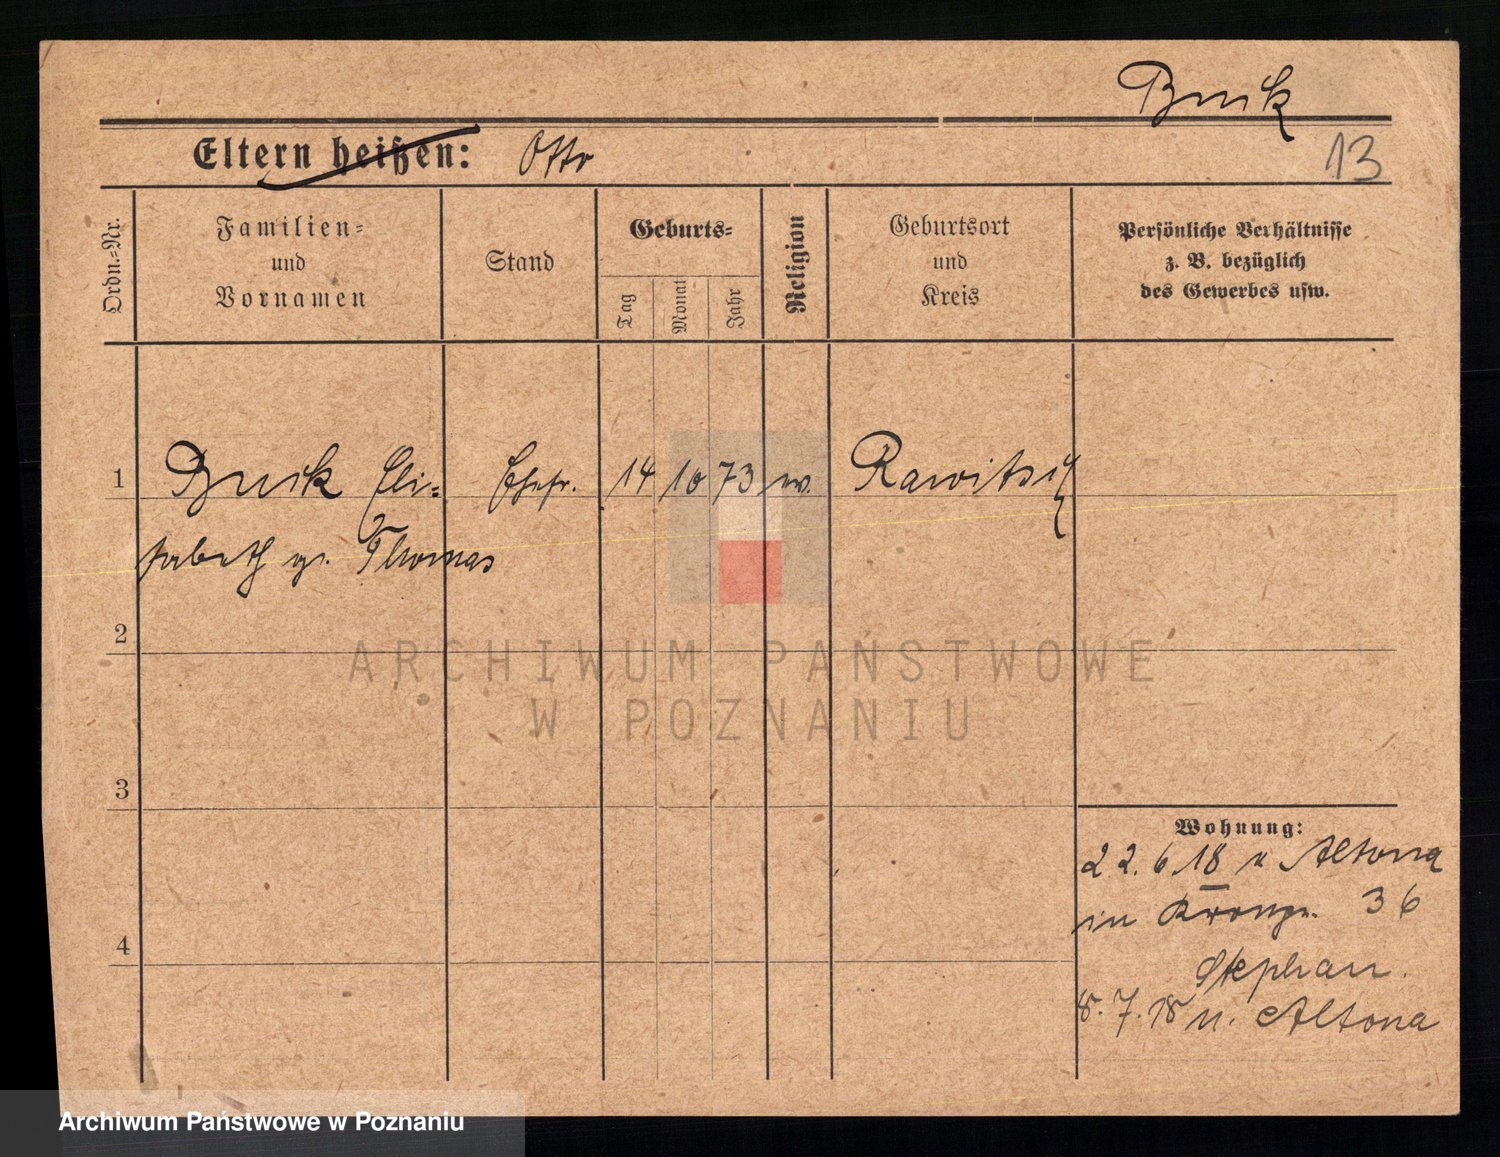 Buck
Eltern heißen: Otto
13
Ordn.-Nr.
Familien-
und
Vornamen
Stand
Geburts-
Tag
Monat
Jahr
Religion
Geburtsort
und
Kreis
Persönliche Verhältnisse
z. B. bezüglich
des Gewerbes usw.
1 Eli- Ehefr. 14 10 73 Rawitsch
sabeth Thomas
2
3
4
Wohnung:
22. 6 18 Altona
in 36
Stephan.
8. 7. 18 n. Altona
ARCHIWUM PAŃSTWOWE
W POZNANIU
Archiwum Państwowe w Poznaniu